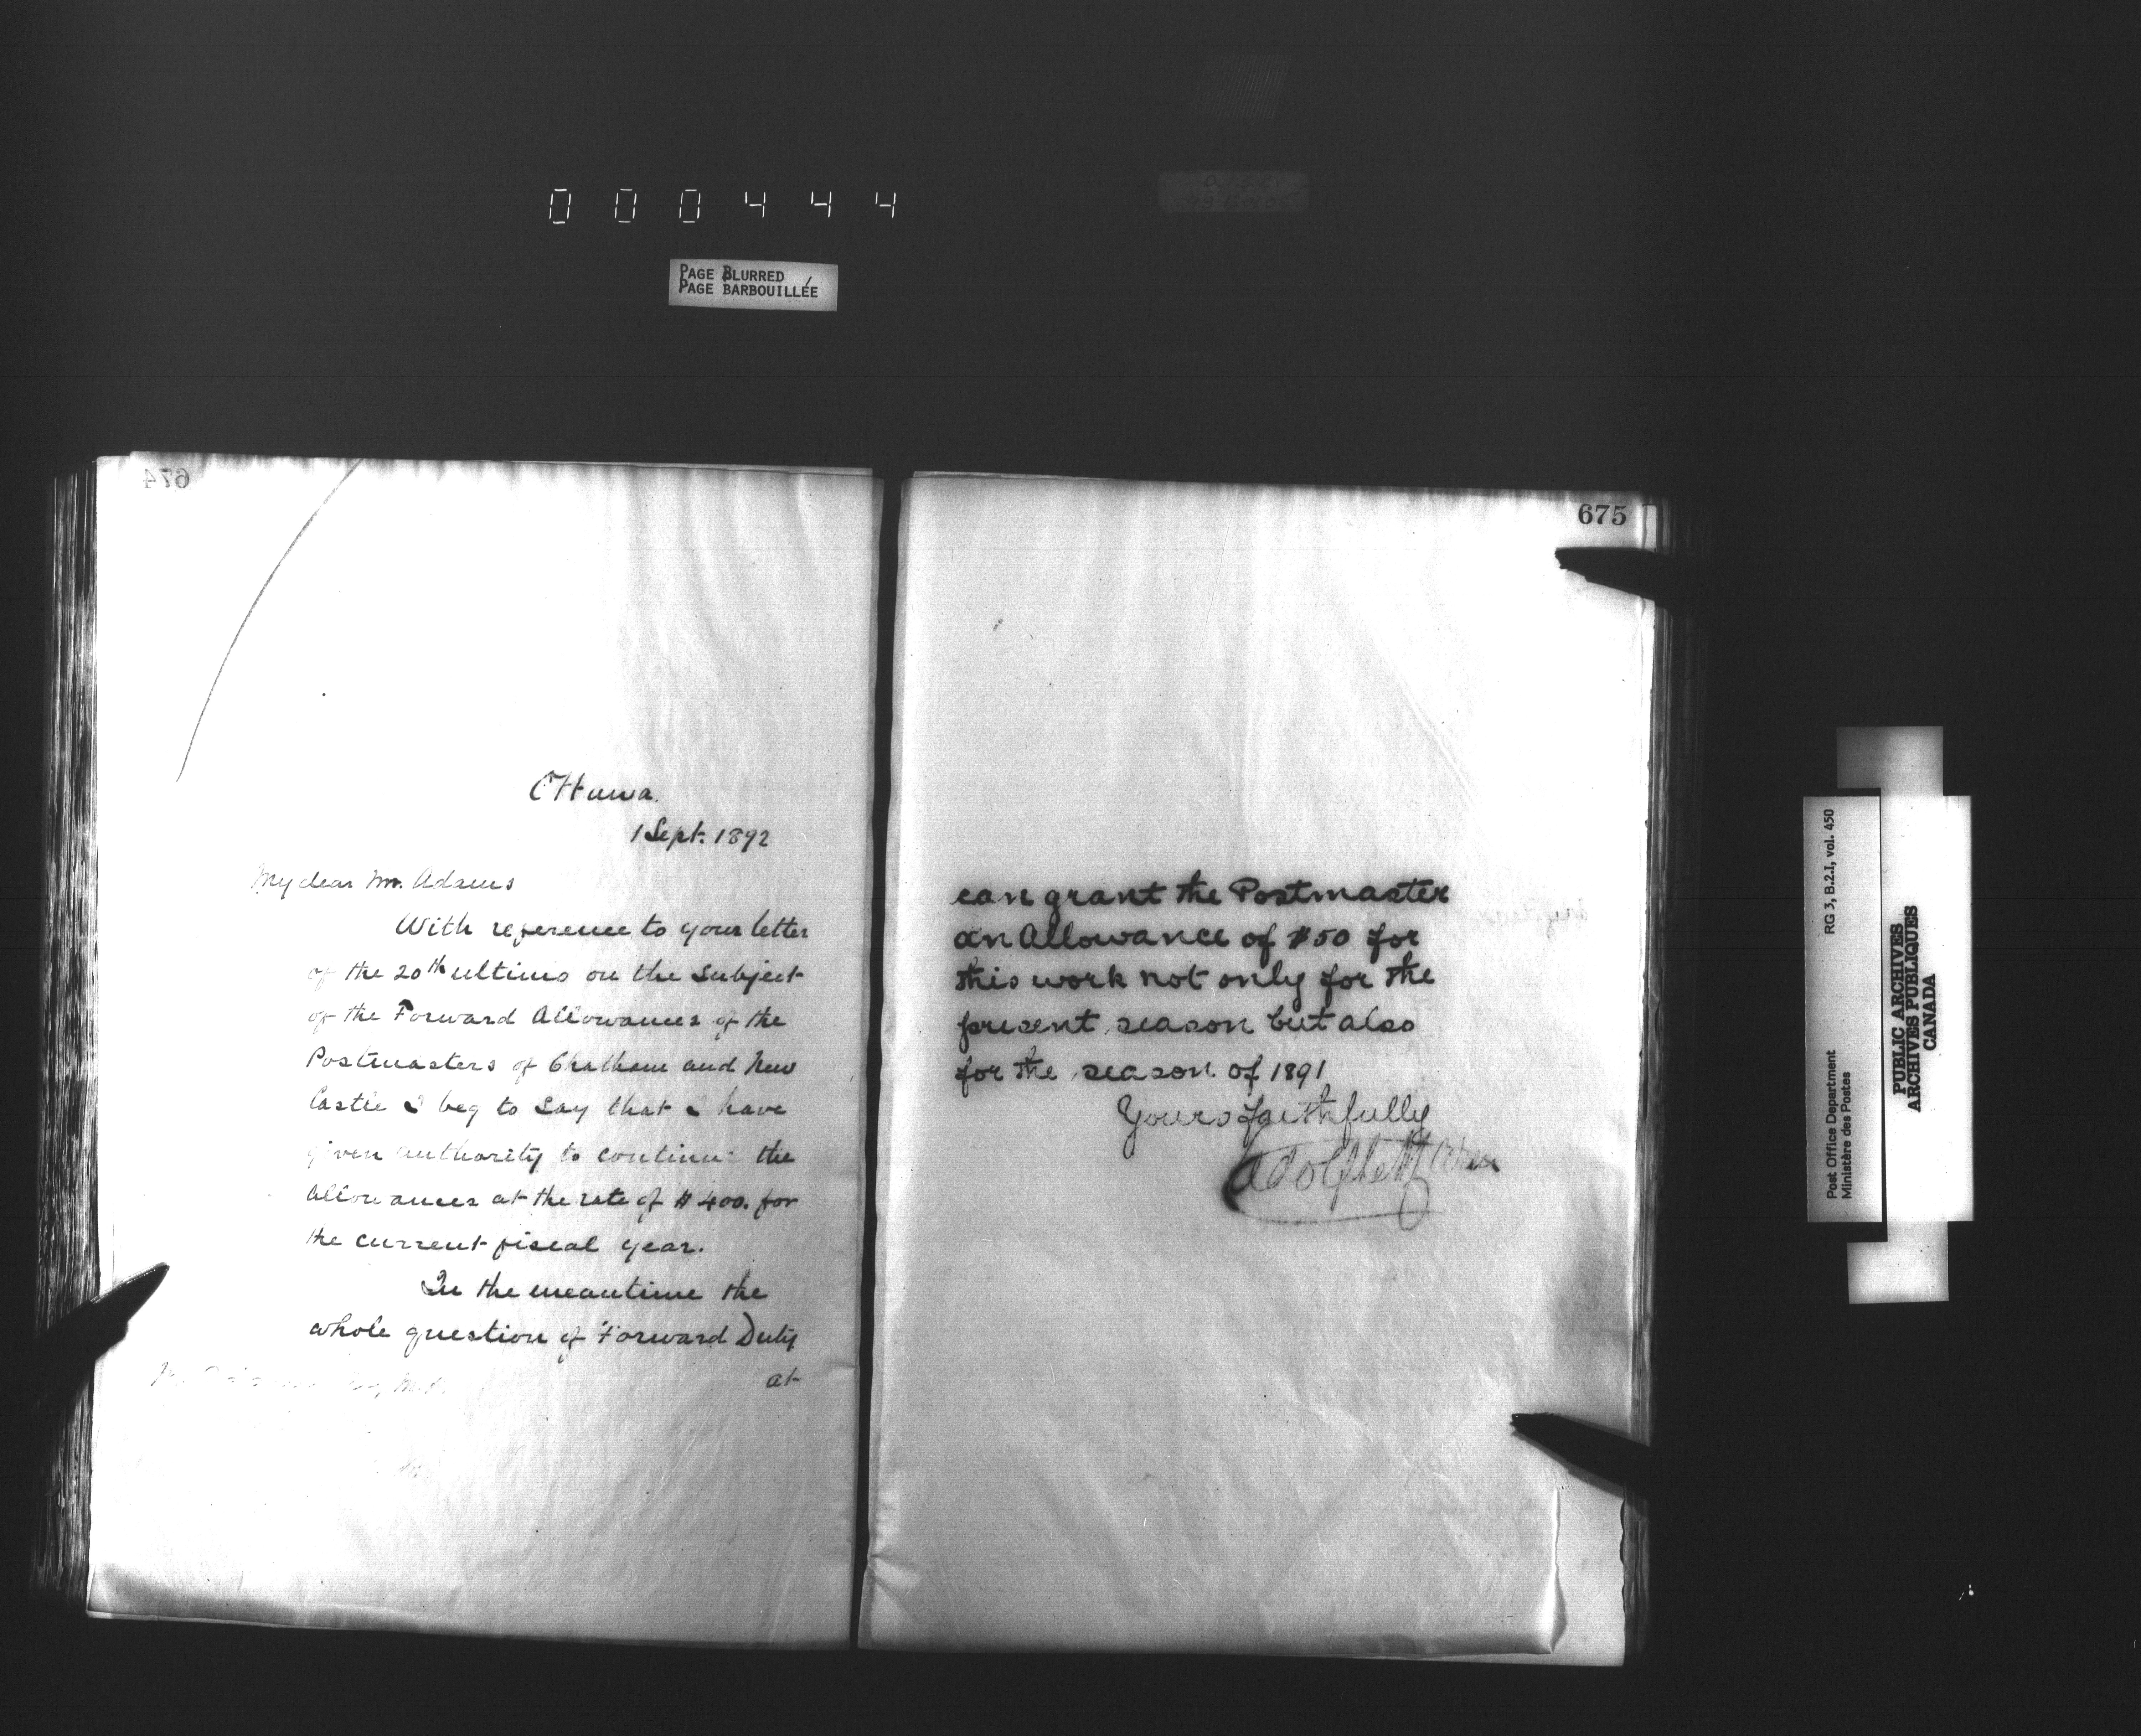 000444
PAGE BLURRED
PAGE BARBOUILLÉE
674
Ottawa.
1 Sept. 1892
My dear Mr. Adams
With reference to your letter
of the 20th ultimo on the subject
of the Forward Allowances of the
Postmasters of Chatham and New
Castle I beg to say that I have
given authority to continue the
Allowances at the rate of $400. for
the current fiscal year.
In the meantime the
whole question of Forward Duty
at
675
can grant the Postmaster
an Allowance of $50 for
this work not only for the
present season but also
for the season of 1891
Yours faithfully
Adolphe
RG 3, B.2.I, vol. 450
Post Office Department
Ministère des Postes
PUBLIC ARCHIVES
ARCHIVES PUBLIQUES
CANADA